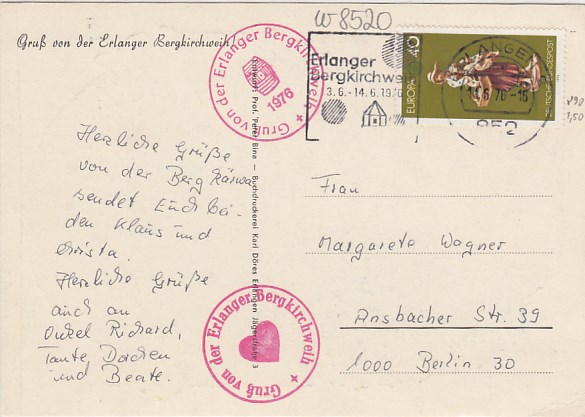 w 8520
Gruß von der Erlanger Bergkirchweih!
Gruß von der Erlanger Bergkirchweih +
1976
Erlanger
Bergkirchweih
3.6.-14.6.1976
ERLANGEN
.6.76-16
852
40
EUROPA
DEUTSCHE BUNDESPOST
890
1,50
Herzliche Grüße
von der Berg Kärwa
sendet Euch bei-
den Klaus und
Christa.
Herzliche Grüße
auch an
Onkel Richard,
Tante, Dacken
und Beate.
Entwurf: Prof. Peter Bina – Buchdruckerei Karl Döres Erlangen Jägerstraße 3
Gruß von der Erlanger Bergkirchweih +
Frau
Margarete Wagner
Ansbacher Str. 39
1000 Berlin 30